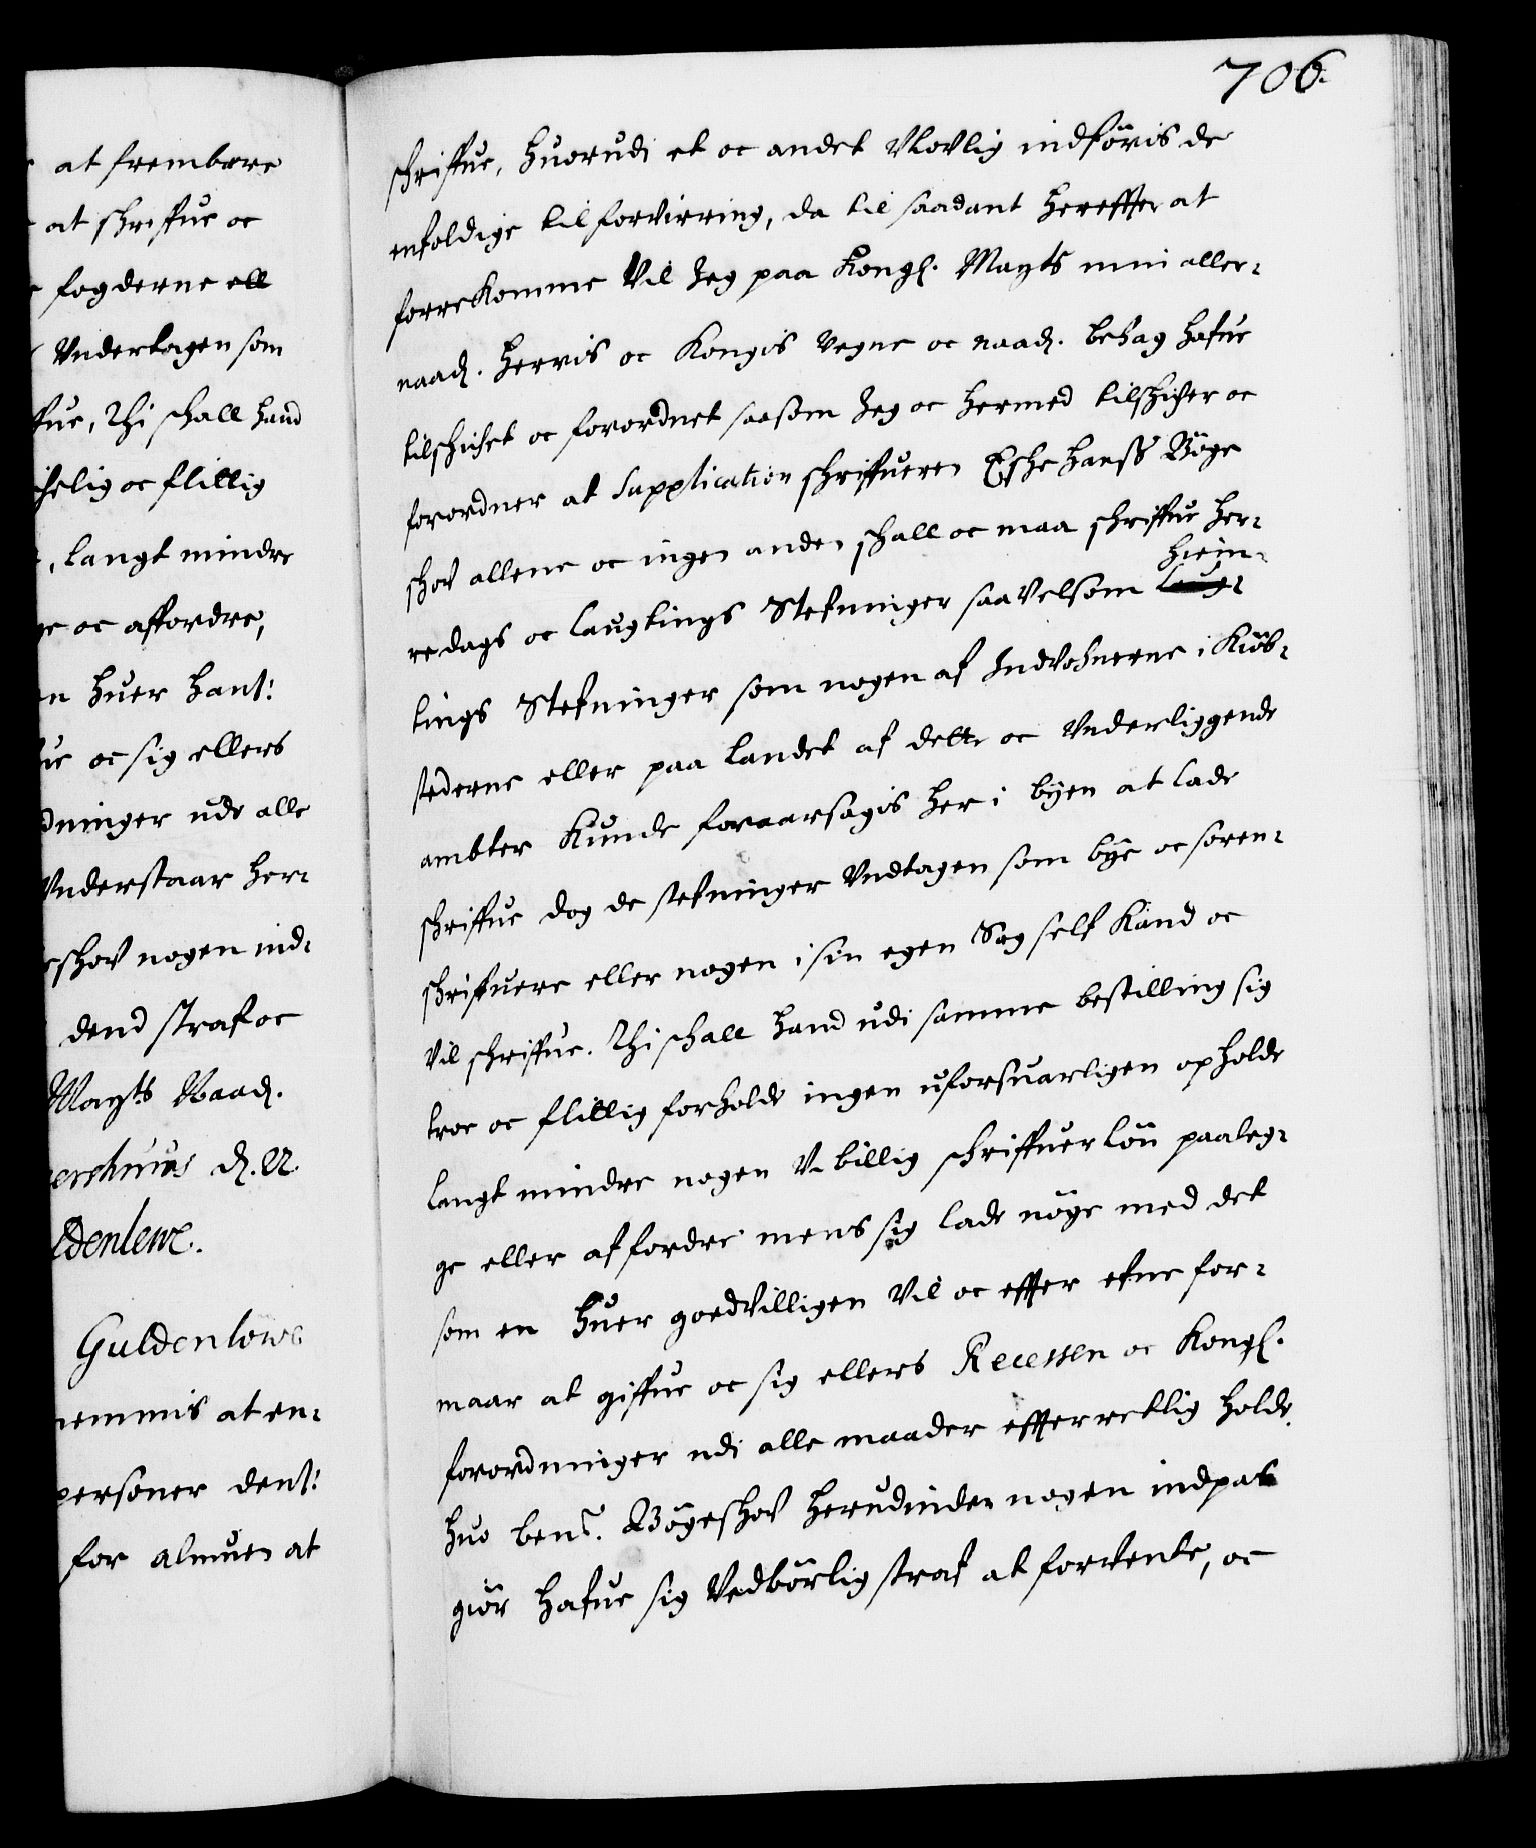 at frembære
at schriffue oc
fogderne ell
Vndertagen som
ffue, Thi schall hand
chelig oc flittig
, langt mindre
ge oc affordre,
en huer hant:
ue oc sig ellers
dninger udi alle
Vnderstaar her-
schov nogen ind-
dend straf oc
Mayts Naad.
ershuus d. 22.
ldenlewe.
Guldenlowe
nemmis at en-
personer dent:
for almuen at
706.
schriffue, huorudi et oc andet Vlovlig indføris de
enfoldige til forvirring, da til saadant hereffter at
forrekomme Vil Jeg paa Kongl. Mayts min aller-
naad. Herris oc Kongis Vegne oc naad. behag hafue
tilschichet oc forordnet saasom Jeg oc hermed tilschicher oc
forordner at Supplication schriffueren Esche hanss Bøge
schov allene oc ingen anden schall oc maa schriffue Her-
hiem-
re dags oc laugtings Stefninger saavelsom laug-
tings Stefninger som nogen af Indvohnerne i Kiøb-
stederne eller paa landet af dette oc Vnderliggende
ambter Kunde foraarsagis her i byen at lade
schriffue dog de stefninger Vndtagen som bye oc soren-
schriffuere eller nogen i sin egen Sag self Kand oc
Vil schriffue. Thi schall hand udi samme bestilling sig
troe oc flittig forholde ingen uforsuarligen opholde
langt mindre nogen V-billig schriffuerløn paaleg-
ge eller affordre mens sig lade nøge med det
som en huer goedvilligen Vil oc effter efne for-
maar at giffue oc sig ellers Recessen oc Kongl.
forordninger udi alle maader effterretlig holde.
huo bent. Bøgeschov herudinden nogen indpas
giør hafue sig Vedbørlig straf at forvente, oc